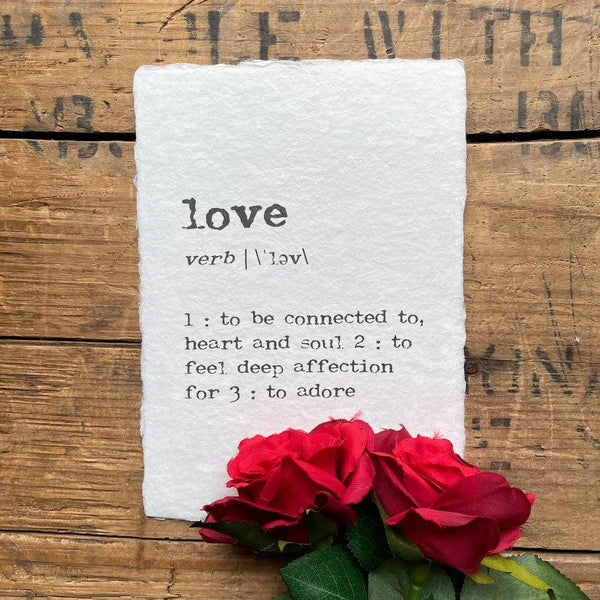 WITH
love
verb | \ˈləv\
1 : to be connected to,
heart and soul 2 : to
feel deep affection
for 3 : to adore